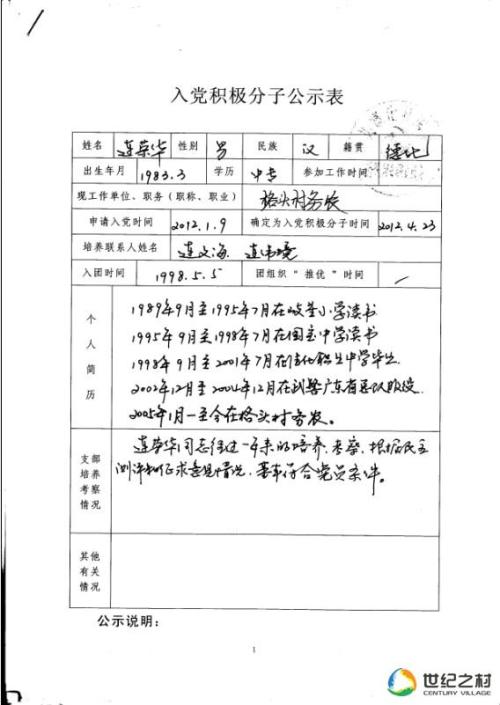 入党积极分子公示表
姓名 连荣华 性别 男 民族 汉 籍贯 德化
出生年月 1983.3 学历 中专 参加工作时间
现工作单位、职务（职称、职业） 格头村务农
申请入党时间 2012.1.9 确定为入党积极分子时间 2012.4.23
培养联系人姓名 连文海 连
入团时间 1998.5.5 团组织“推优”时间 /
个人简历
1989年9月至1995年7月在岐荃小学读书
1995年9月至1998年7月在国宝中学读书
1998年9月至2001年7月在德化职业中学毕业
2002年12月至2004年12月在 广东省 队服役
2005年1月—至今在格头村务农。
支部培养考察情况
连荣华同志经过一年来的培养、考察,根据民主
测评和征求意见情况,基本符合党员条件。
其他有关情况
公示说明：
1
世纪之村
CENTURY VILLAGE